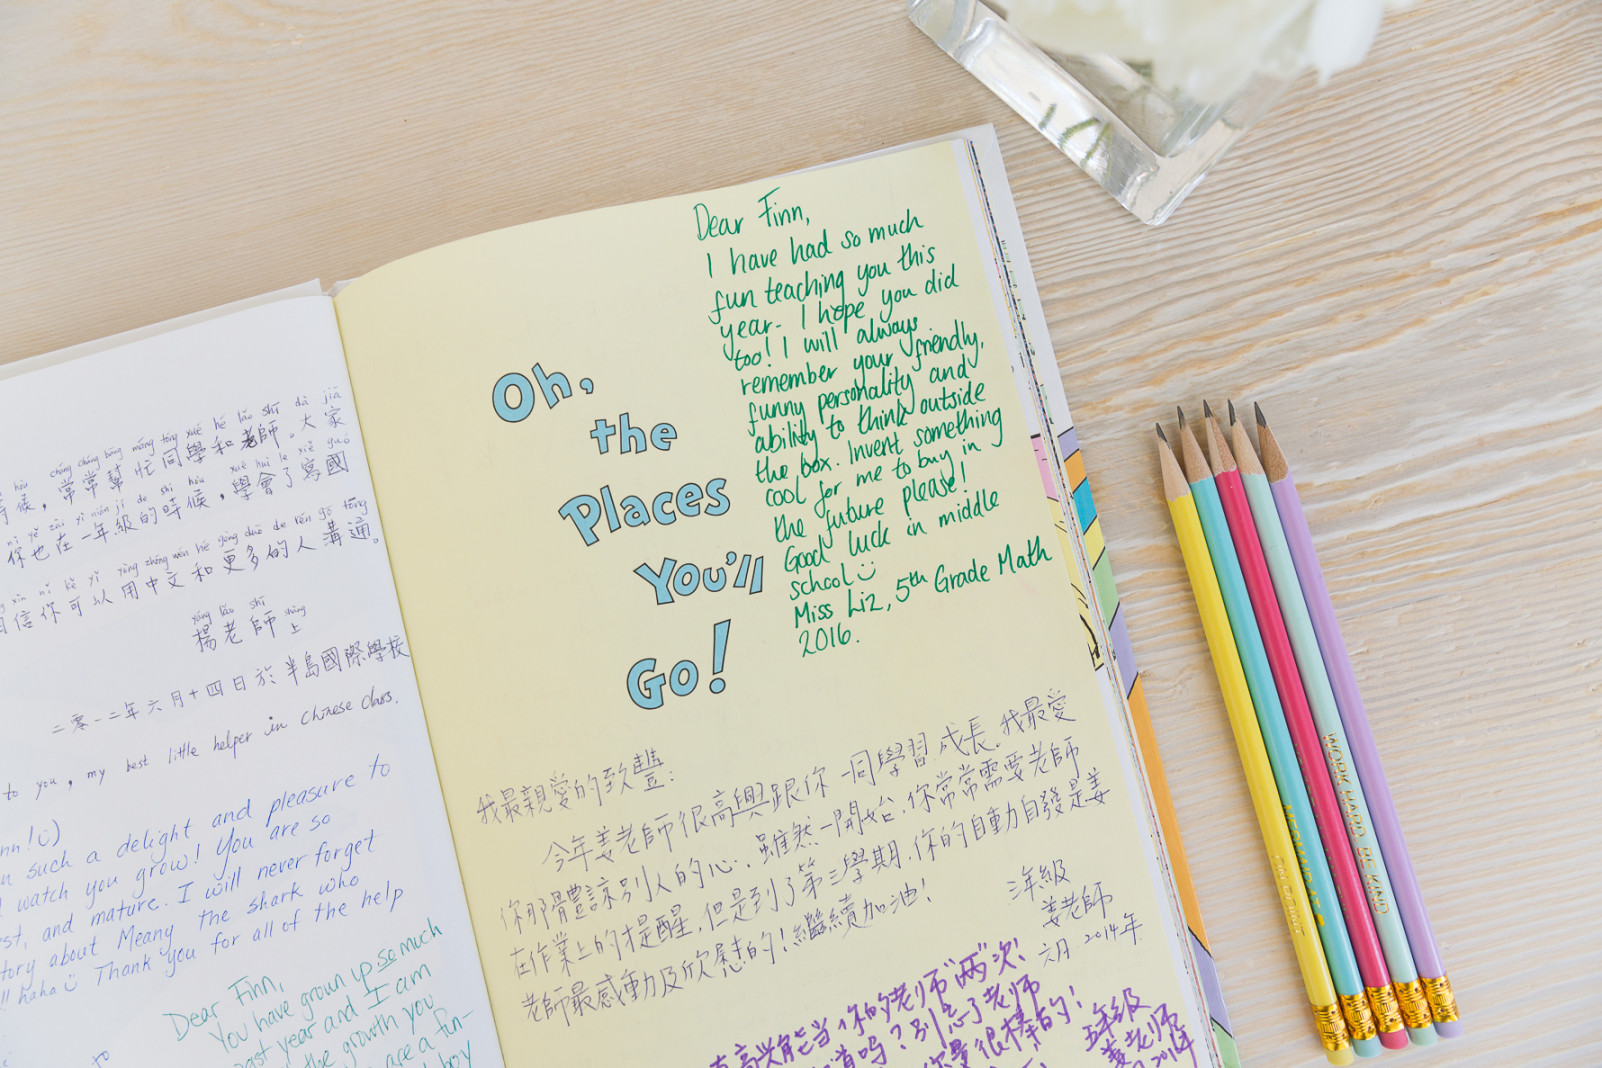 hòu cháng cháng bāng máng tóng xué hé lǎo shī dà jiā
候，常常幫忙同學和老師。大家
nǐ yě zài yì nián jí de shí hòu xué huì le xiě guó
你也在一年級的時候，學會了寫國
xìn nǐ kě yǐ yòng zhōng wén hé gèng duō de rén gōu tōng
信你可以用中文和更多的人溝通。
yáng lǎo shī shàng
楊老師上
二零一二年六月十四日於半島國際學校
to you, my best little helper in Chinese class.
such a delight and pleasure to
watch you grow! You are so
and mature. I will never forget
about Meang the shark who
haha☺ Thank you for all of the help
Dear Finn,
You have grown up so much
year and I am
the growth you
are a fun-
boy
Oh,
the
Places
You'll
Go!
Dear Finn,
I have had so much
fun teaching you this
year. I hope you did
too! I will always
remember your friendly,
funny personality and
ability to think outside
the box. Invent something
cool for me to buy in
the future please!
Good luck in middle
school☺
Miss Liz, 5th Grade Math
2016.
我最親愛的致豐：
今年姜老師很高興跟你一同學習成長。我最愛
你那體諒別人的心。雖然一開始，你常常需要老師
在作業上的提醒，但是到了第三學期，你的自動自發是姜
老師最感動及欣慰的！繼續加油！
三年級
姜老師
六月 2014年
高兴能当你的老师"两"次！
吗？别忘了老师
很棒的！
五年级
姜老师
WORK HARD. BE KIND